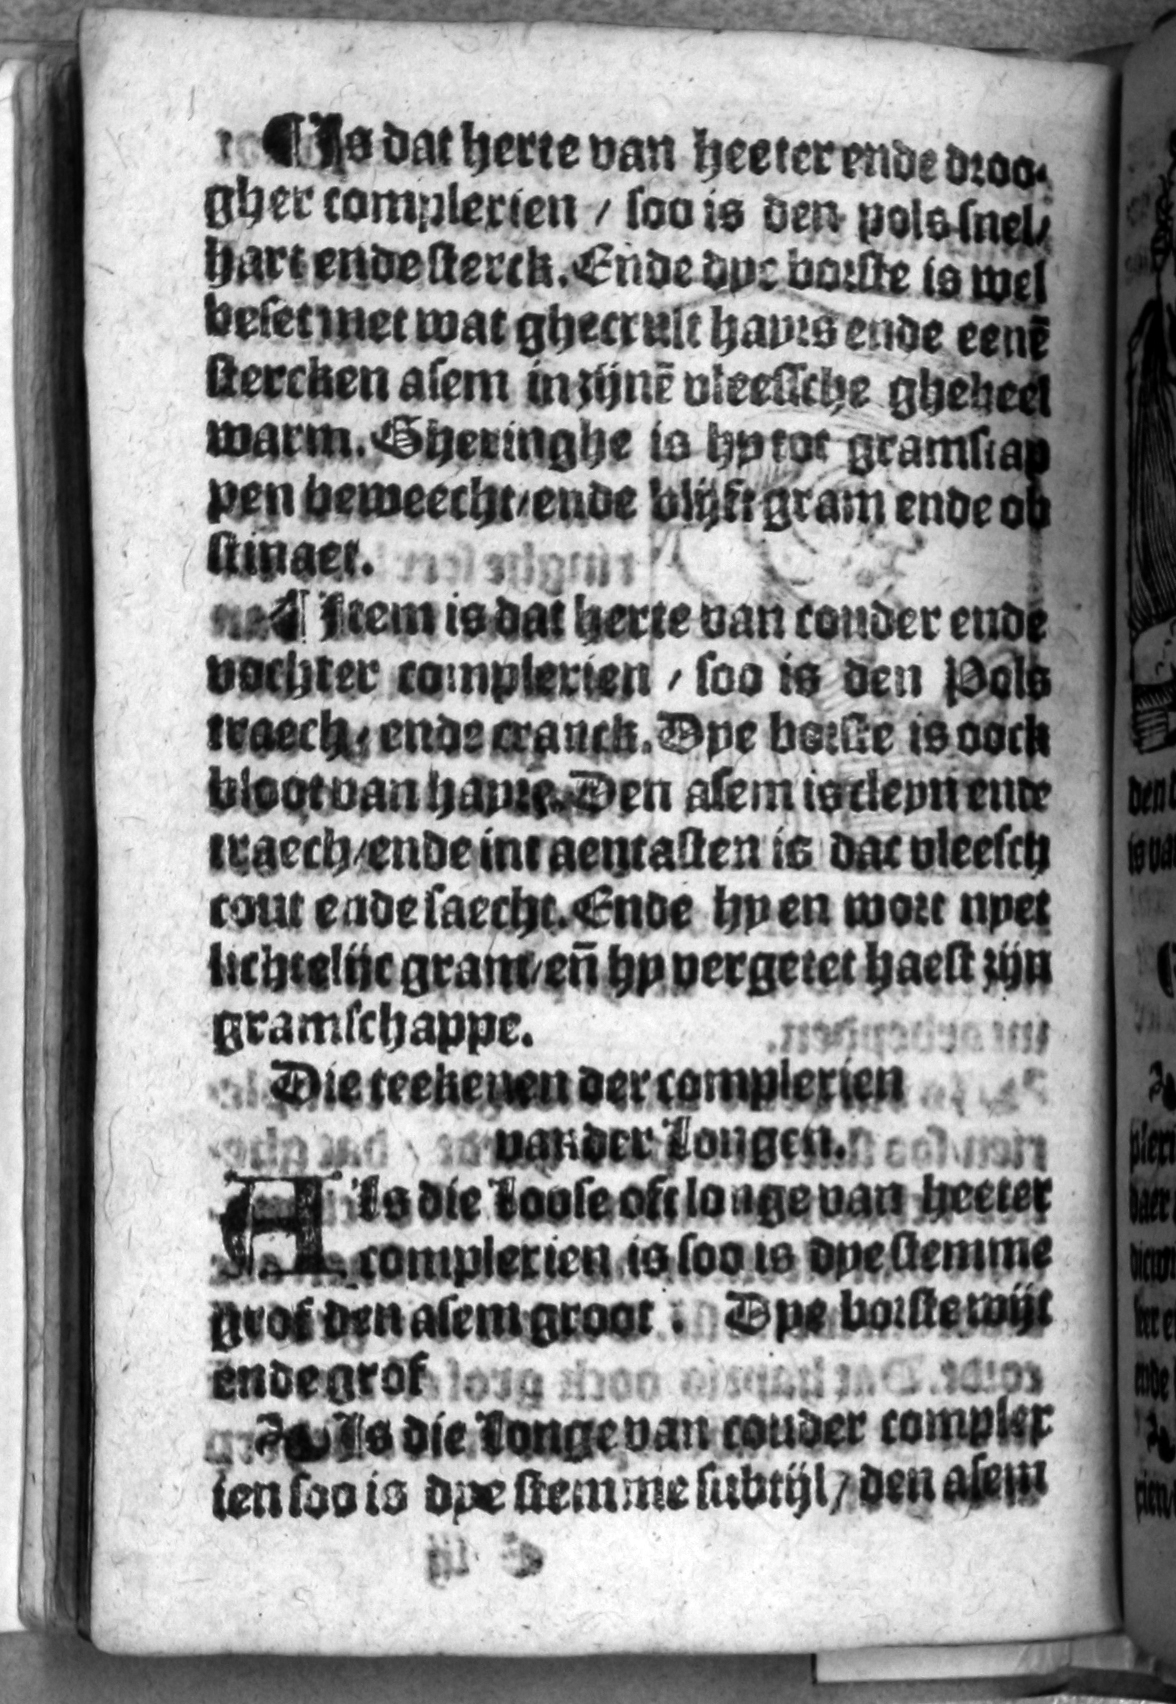 ¶ Is dat herte van heeter ende droo-
gher complexien / soo is den pols snel/
hart ende sterck. Ende dye borste is wel
beset met wat ghecrult hayrs ende eenē
stercken asem in zijnē vleessche gheheel
warm. Gheringhe is hy tot gramscap
pen beweecht/ende blijft gram ende ob
stinaet.
¶ Item is dat herte van couder ende
vochter complexien / soo is den Pols
traech/ ende cranck. Dye borste is oock
bloot van hayre. Den asem is cleyn ende
traech/ende int aentasten is dat vleesch
cout ende saecht. Ende hy en wort nyet
lichtelijc gram/eñ hy vergetet haest zijn
gramschappe.
Die teekenen der complexien
vander Longen.
Als die Loose oft longe van heeter
complexien is soo is dye stemme
grof den asem groot : Dye borste wijt
ende grof
Is die Longe van couder complex
ien soo is dye stemme subtijl/ den asem